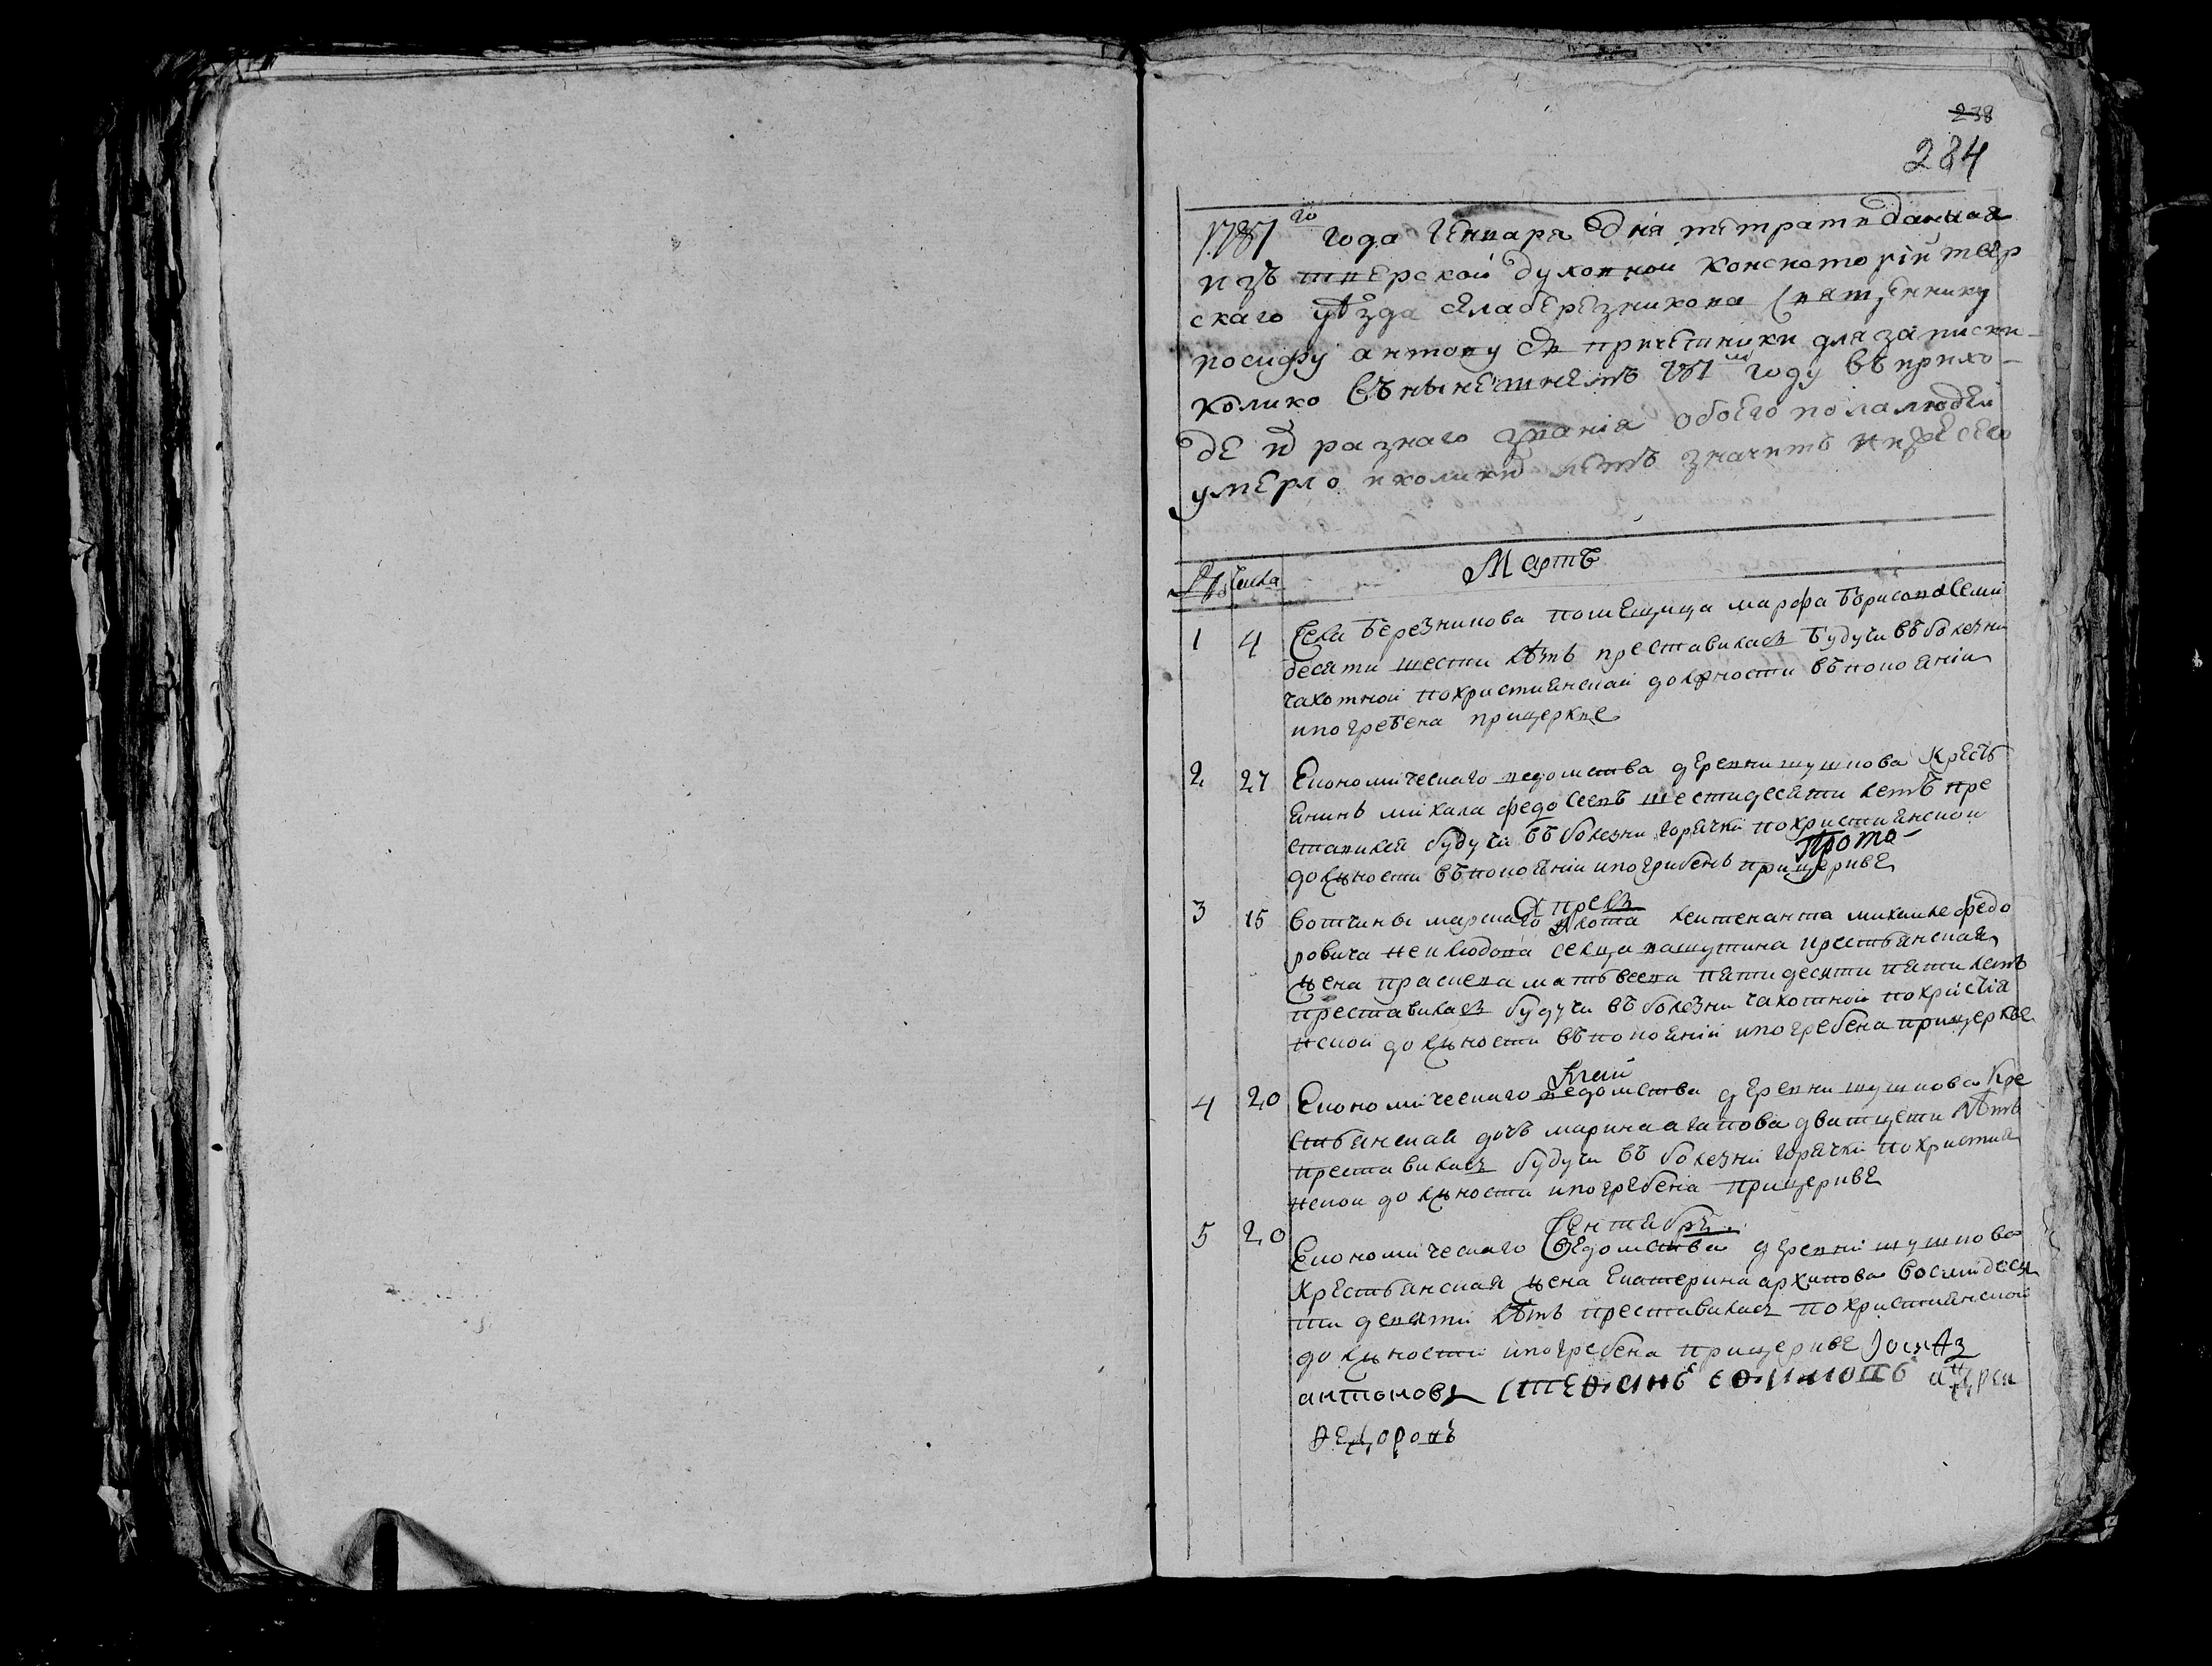 238
284
1781го года Генваря дня титрати данная
изъ тверской духовной консисторіи твер
скаго уѣзда села березникова священнику
иосифу антону съ причетники для записки
колико въ нынешнемъ 781м году въ прихо-
де и разнаго звания обоего пола людей
умерло и колики летъ значитъ ниже сего
№ числа Мартъ
1 4 Села березникова помещица марфа борисова семи
десяти шести лѣтъ преставилась будучи въ болезни
чахотной по христианской должности въ покоянии
и погребена при церкве
2 27 Економическаго ведомства деревни шушкова кресть
янинъ михаила федосеевъ шестидесяти летъ пре
ставился будучи въ болезни горячки по христианской
Прото-
должности въ покоянии и погрибенъ при церкве
Апрель
3 15 вотчины марскаго флота лейтенанта михаиле федо
ровича неклюдова сельца пашутина крестьянская
жена прасковя матвеева пятидесяти пяти летъ
преставилась будучи въ болезни чахотной по христиа
нской должности въ покоянии и погребена при церкве
Маи
4 20 Економическаго ведомства деревни шушкова кре
стьянская дочъ марина агапова дватцети лѣтъ
преставилась будучи въ болезни горячки по христиа
нскои должности и погребена при церкве
Сентябрь
5 20 Економическаго ведомства деревни шушкова
крестьянская жена Екатерина архипова восмидеся
ти девяти лѣтъ преставилась по христианской
должности и погребена при церкве Іосифъ
антоновъ стефанъ ефимовъ андреи
федоровъ